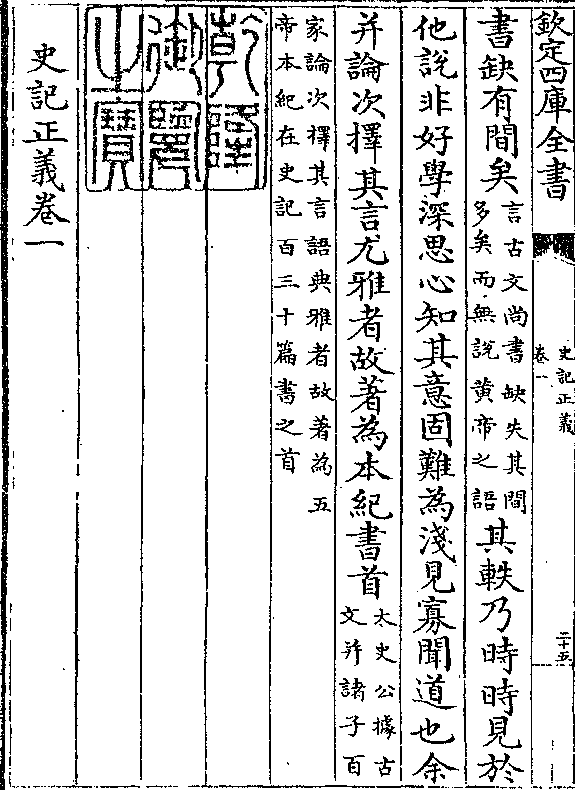 欽定四庫全書
史記正義
卷一
二十五
書缺有間矣言古文尚書缺失其間多矣而無說黄帝之語其軼乃時時見於
他說非好學深思心知其意固難為淺見寡聞道也余
并論次擇其言尤雅者故著為本紀書首太史公據古文并諸子百
家論次擇其言語典雅者故著為五帝本紀在史記百三十篇書之首
乾隆御覽之寶
史記正義卷一